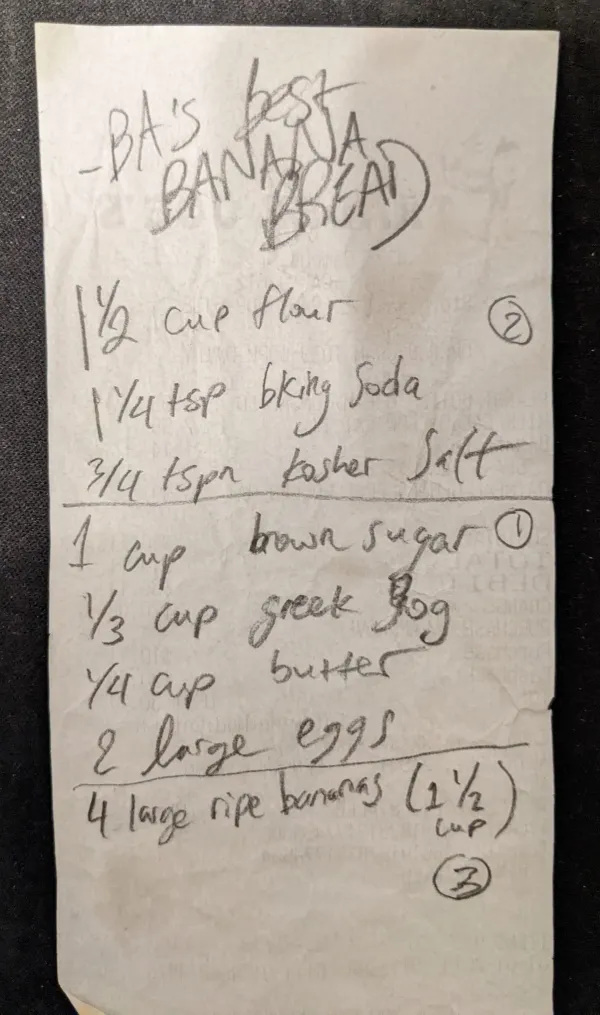 -BA's best
BANANA
BREAD
1 1/2 cup flour ②
1 1/4 tsp bking Soda
3/4 tspn kosher Salt
1 cup brown sugar ①
1/3 cup greek yog
1/4 cup butter
2 large eggs
4 large ripe bananas (1 1/2
cup)
③